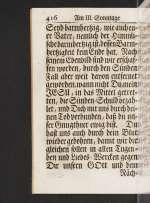 416 Am III. Sonntage
Seyd barmhertzig, wie auch eu-
er Vater, nemlich der Himmli-
sche barmhertzig ist, dessen Barm-
hertzigkeit kein Ende hat. Nach
seinem Ebenbild sind wir erschaf-
fen worden, durch den Sünden-
Fall aber weit davon entfernet
geworden, wann nicht Du, mein
JESU, in das Mittel getret-
ten, die Sünden-Schuld bezah-
let, und Dich mit uns durch dei-
nen Tod verbunden, daß du un-
ser Gnugthuer ewig bist. Du
hast uns auch durch dein Blut
wieder gebohren, damit wir die
gleichen sollen in allen Tugen-
den und Liebes-Wercken gegen
Dir unsern GOtt und dem
Näch-